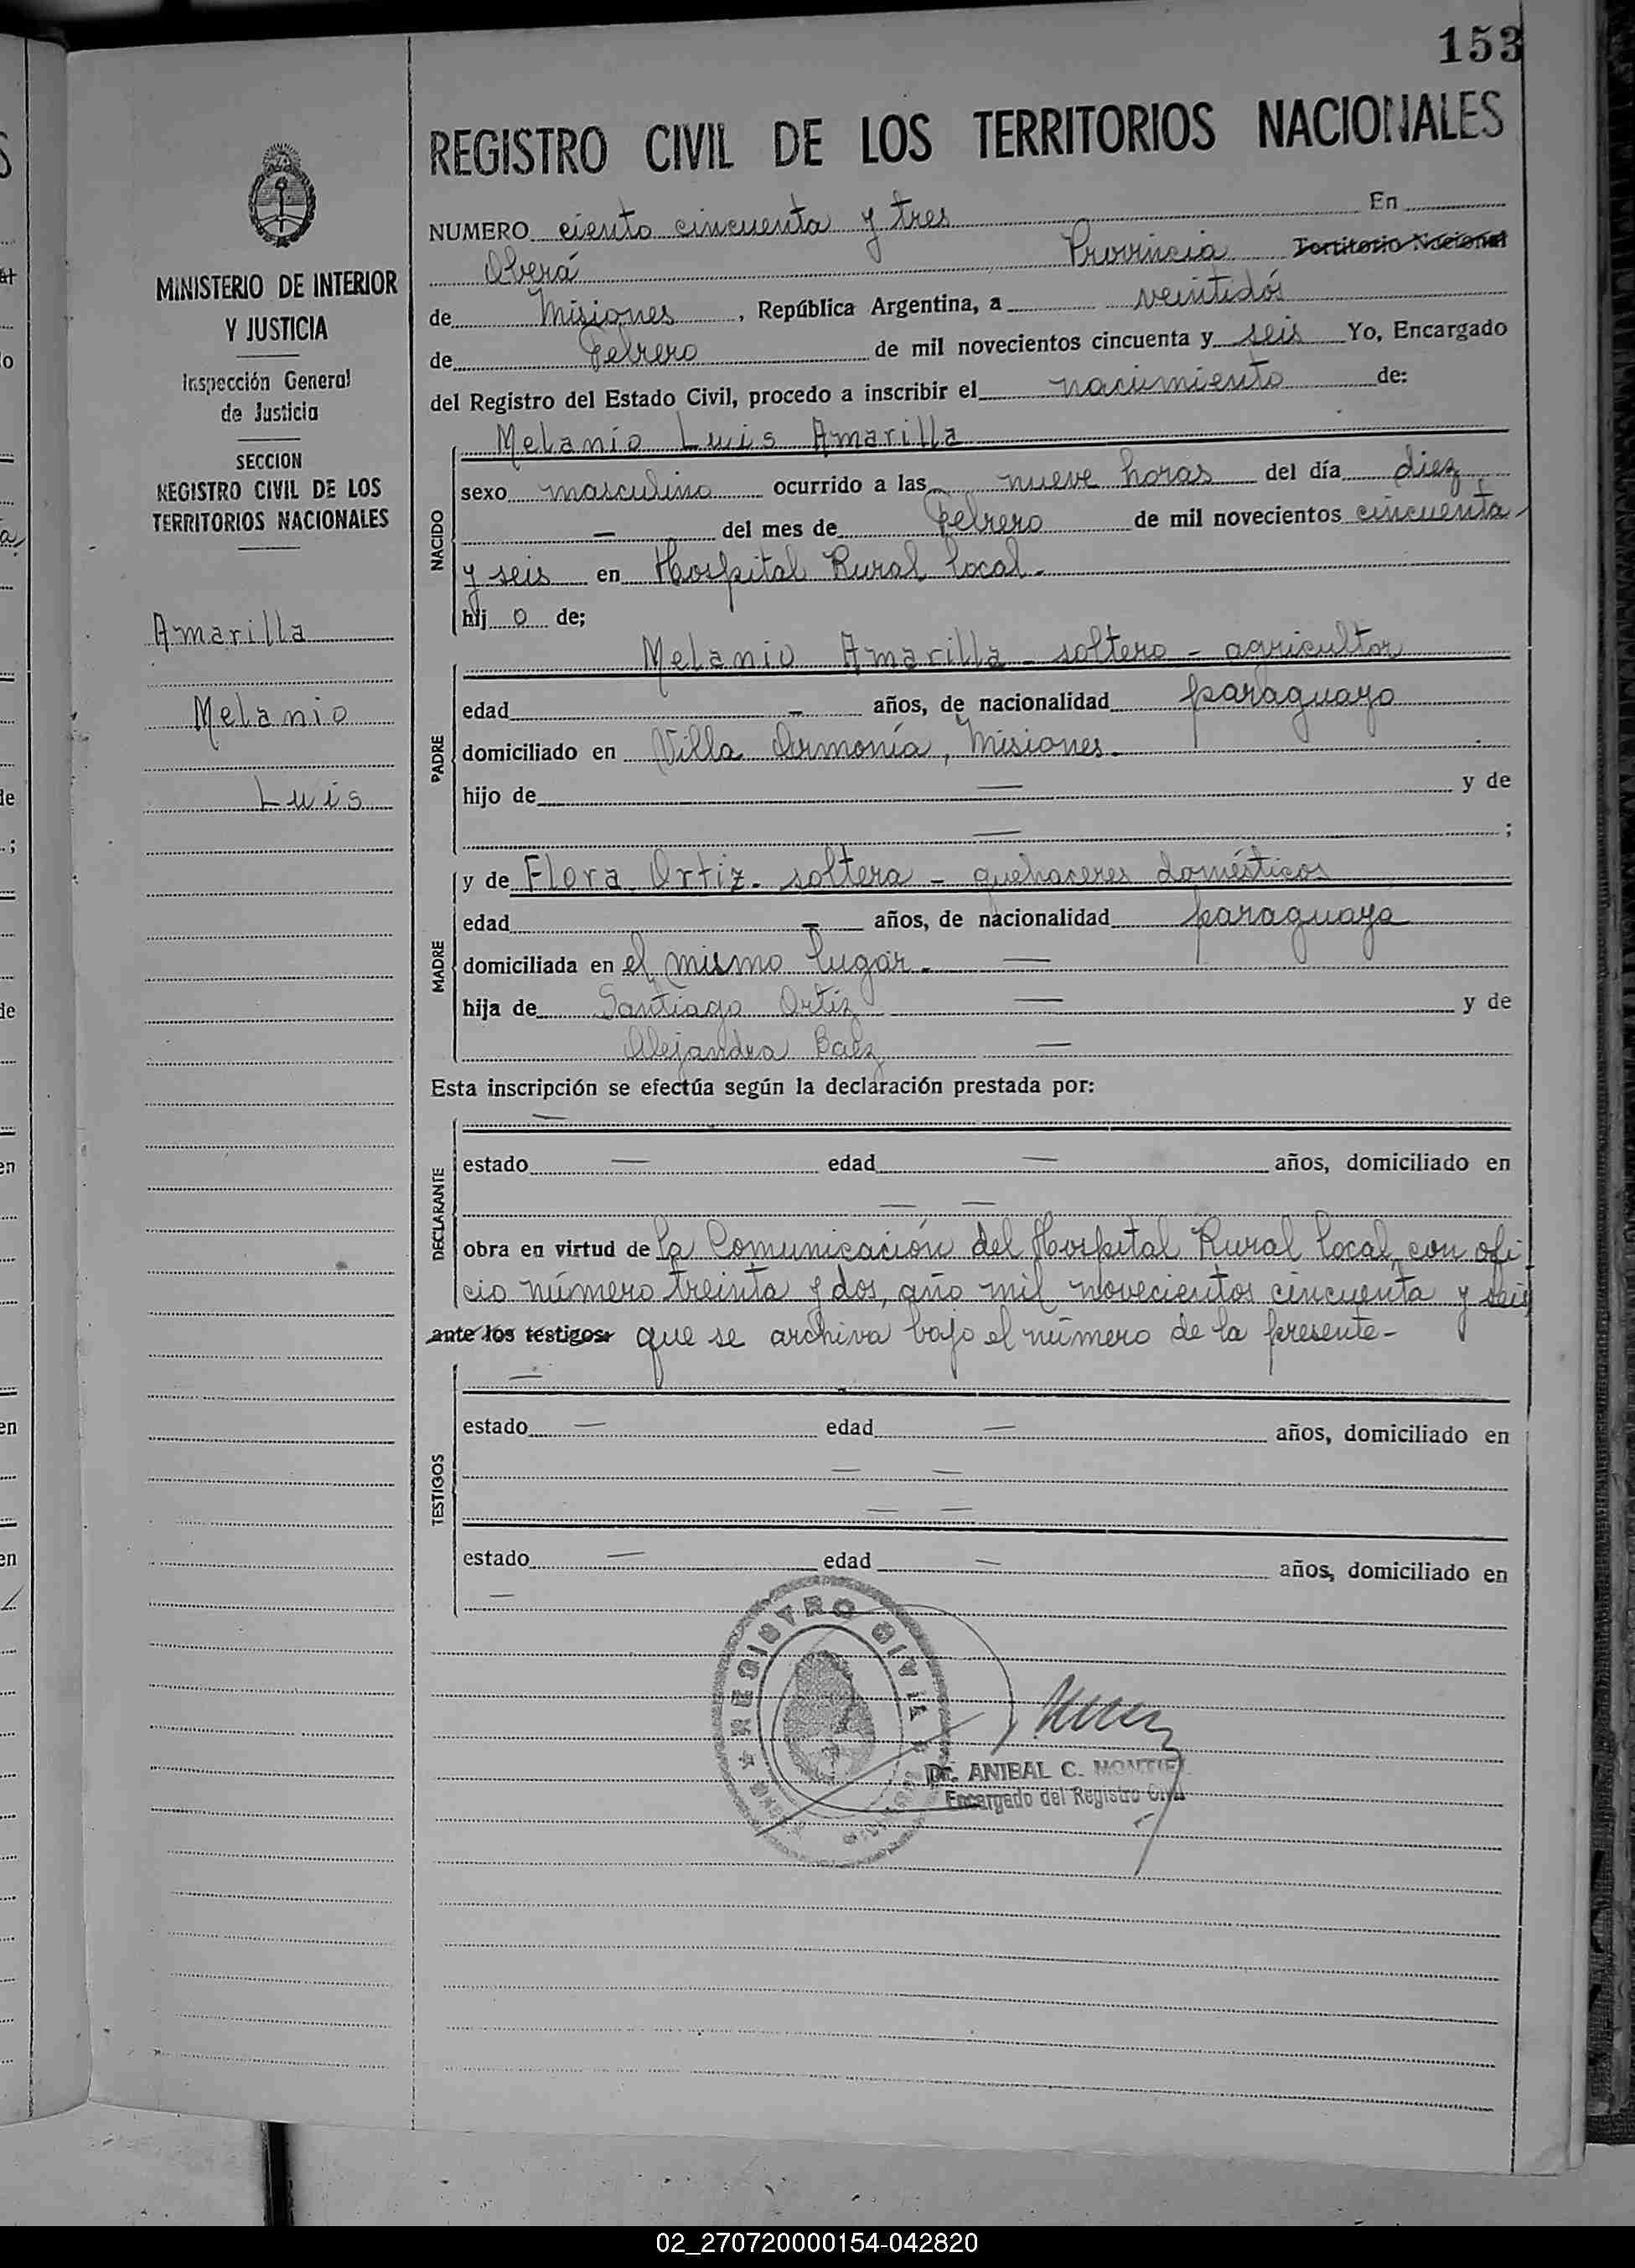 153
REGISTRO CIVIL DE LOS TERRITORIOS NACIONALES
MINISTERIO DE INTERIOR
Y JUSTICIA
Inspección General
de Justicia
SECCION
REGISTRO CIVIL DE LOS
TERRITORIOS NACIONALES
Amarilla
Melanio
Luis
NUMERO ciento cincuenta y tres En
Oberá Provincia Territorio Nacional
de Misiones, República Argentina, a veintidós
de Febrero de mil novecientos cincuenta y seis Yo, Encargado
del Registro del Estado Civil, procedo a inscribir el nacimiento de:
NACIDO
Melanio Luis Amarilla
sexo masculino ocurrido a las nueve horas del día diez
— del mes de Febrero de mil novecientos cincuenta
y seis en Hospital Rural local.
hij o de;
PADRE
Melanio Amarilla - soltero - agricultor
edad — años, de nacionalidad paraguayo
domiciliado en Villa Armonía, Misiones.
hijo de — y de
— ;
MADRE
y de Flora Ortiz. soltera - quehaceres domésticos
edad — años, de nacionalidad paraguaya
domiciliada en el mismo lugar. —
hija de Santiago Ortiz — y de
Alejandra Baez —
Esta inscripción se efectúa según la declaración prestada por:
DECLARANTE
—
estado — edad — años, domiciliado en
— —
obra en virtud de la Comunicación del Hospital Rural local, con ofi-
cio número treinta y dos, año mil novecientos cincuenta y seis
ante los testigos: que se archiva bajo el número de la presente -
TESTIGOS
—
estado — edad — años, domiciliado en
— —
— —
estado — edad — años, domiciliado en
—
REGISTRO CIVIL
Dr. ANIBAL C. MONTIEL
Encargado del Registro Civil
02_270720000154-042820